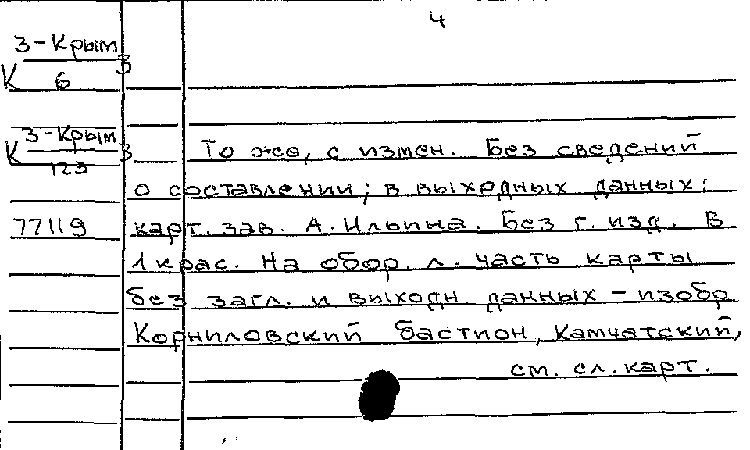 4
3-Крым
К 6 3
3-Крым
К 123 3
То же, с измен. Без сведений
о составлении; в выходных данных:
77119 карт. зав. А. Ильина. Без г. изд. В
1 крас. На обор. л. часть карты
без загл. и выходн. данных – изобр
Корниловский бастион, Камчатский,
см. сл. карт.